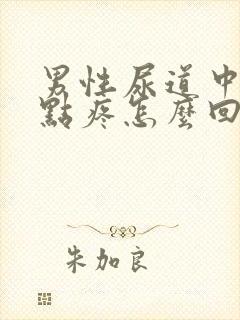 男性尿道中
點疼怎麼回
朱加良